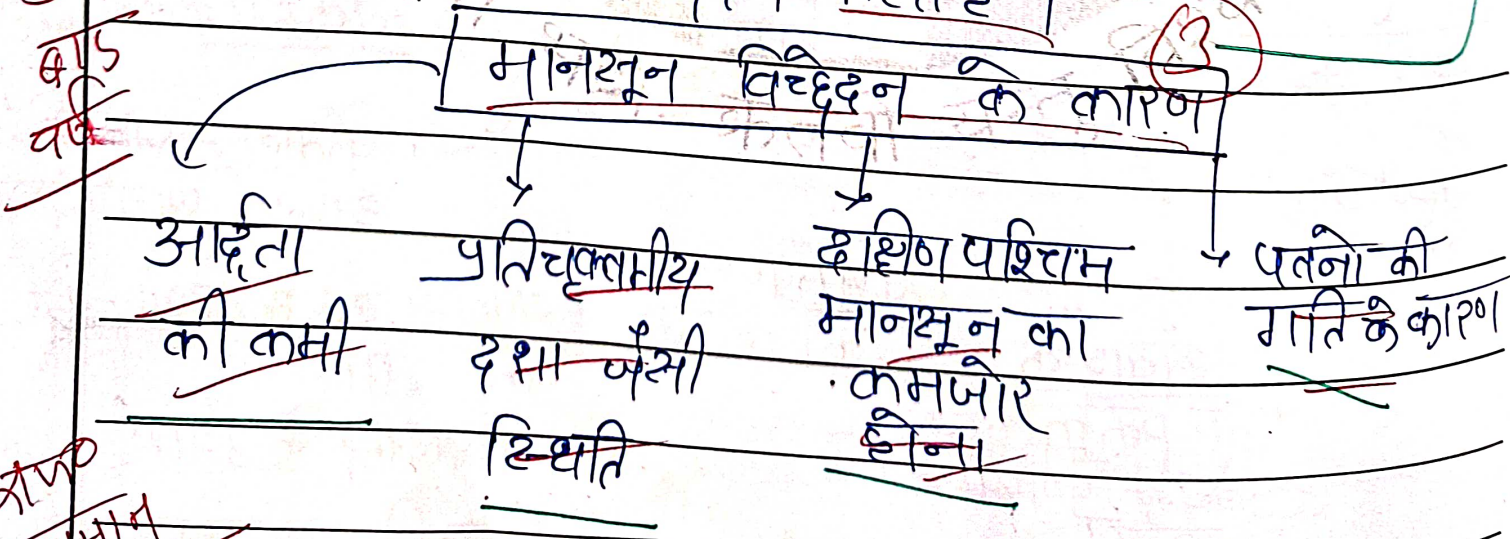 3
मानसून विच्छेदन के कारण
आर्द्रता
की कमी
प्रतिचक्रवातीय
दशा जैसी
स्थिति
दक्षिण पश्चिम
मानसून का
कमजोर
होना
पवनो की
गति के कारण